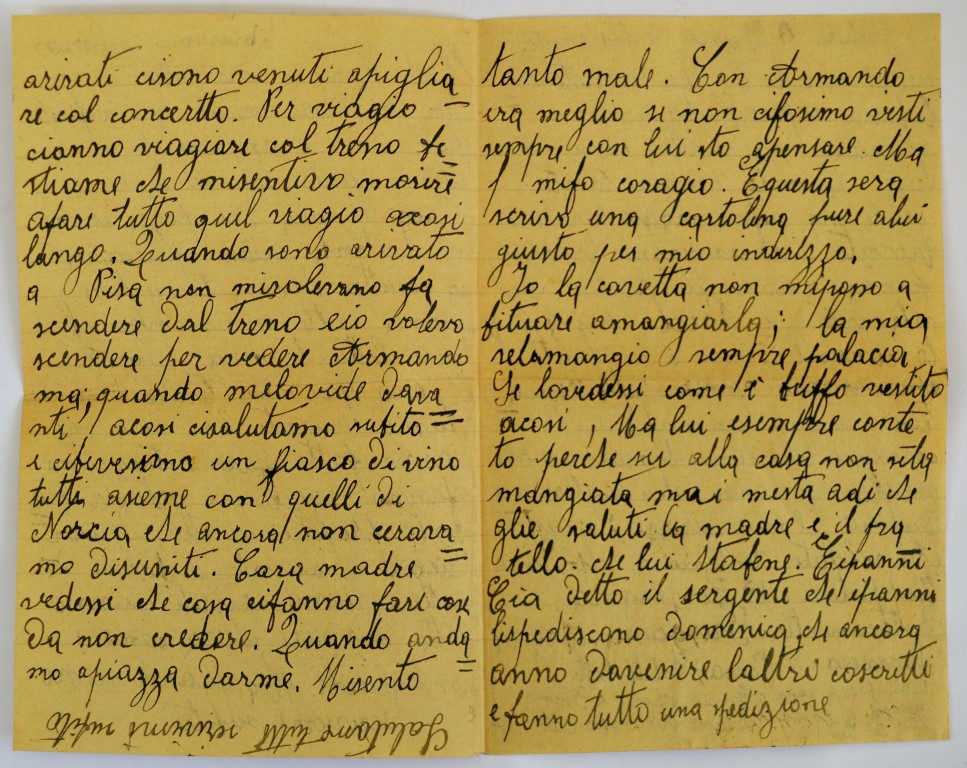 arivati cisono venuti apiglia=
re col concertto. Per viagio
cianno viagiare col treno be=
stiame che misentivo morire
afare tutto quel viagio acosi
lungo. Quando sono arivato
a Pisa non misolevano fa
scendere dal treno eio volevo
scendere per vedere Armando
ma, quando melovide dava=
nti, acosi cisalutamo subito
e cibevessimo un fiasco di vino
tutti asieme con quelli di
Norcia che ancora non cerava=
mo disuniti. Cara madre
vedessi che cosa cifanno fare cose
da non credere. Quando anda=
mo apiazza darme. Misento
tanto male. Con Armando
era meglio se non cifosimo visti
sempre con lui sto apensare. Ma
mifo coragio. Equesta sera
scrivo una cartolina pure alui
giusto per mio indirizzo.
Io la cavetta non miposo a
bituare amangiarla; la mia
selamangio sempre palacia,
Se lovedessi come è buffo vestito
acosi, Ma lui esempre conte
to perche su alla casa non sela
mangiata mai mesta adi che
glie saluti la madre e il fra
tello. che lui stabene. Eipanni
Cia detto il sergente che ipanni
lispediscono domenica, che ancora
anno davenire laltri coscritti
e fanno tutto una spedizione
Salutame tutti scrivimi subito